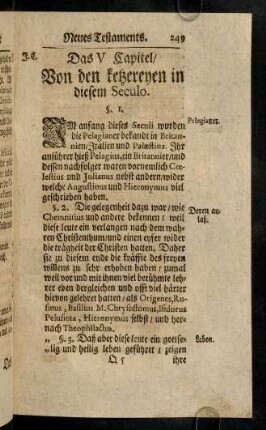 Neues Testaments. 249
J.C.
Das V Capitel/
Von den ketzereyen in
diesem Seculo.
§. 1.
IM anfang dieses Seculi wurden
Pelagianer.
die Pelagianer bekandt in Britan-
nien/ Italien und Palæstina. Ihr
anführer hieß Pelagius, ein Britannier/ und
dessen nachfolger waren vornemlich Cœ-
lestius und Julianus nebst andern/ wider
welche Augustinus und Hieronymus viel
geschrieben haben.
§. 2. Die gelegenheit dazu war/ wie
Deren an-
laß.
Chemnitius und andere bekennen: weil
diese leute ein verlangen nach dem wah-
ren Christenthum/ und einen eyfer wider
die trägheit der Christen hatten. Daher
sie zu diesem ende die kräffte des freyen
willens zu sehr erhoben haben/ zumal
weil vor und mit ihnen viel berühmte leh-
rer eben dergleichen und offt viel härter
hievon gelehret hatten/ als Origenes, Ru-
finus, Basilius M. Chrysostomus, Isidorus
Pelusiota, Hieronymus selbst/ und her-
nach Theophilactus.
„ §. 3. Daß aber diese leute ein gottse-
Leben.
„lig und heilig leben geführet/ zeigen
Q 5 ihre